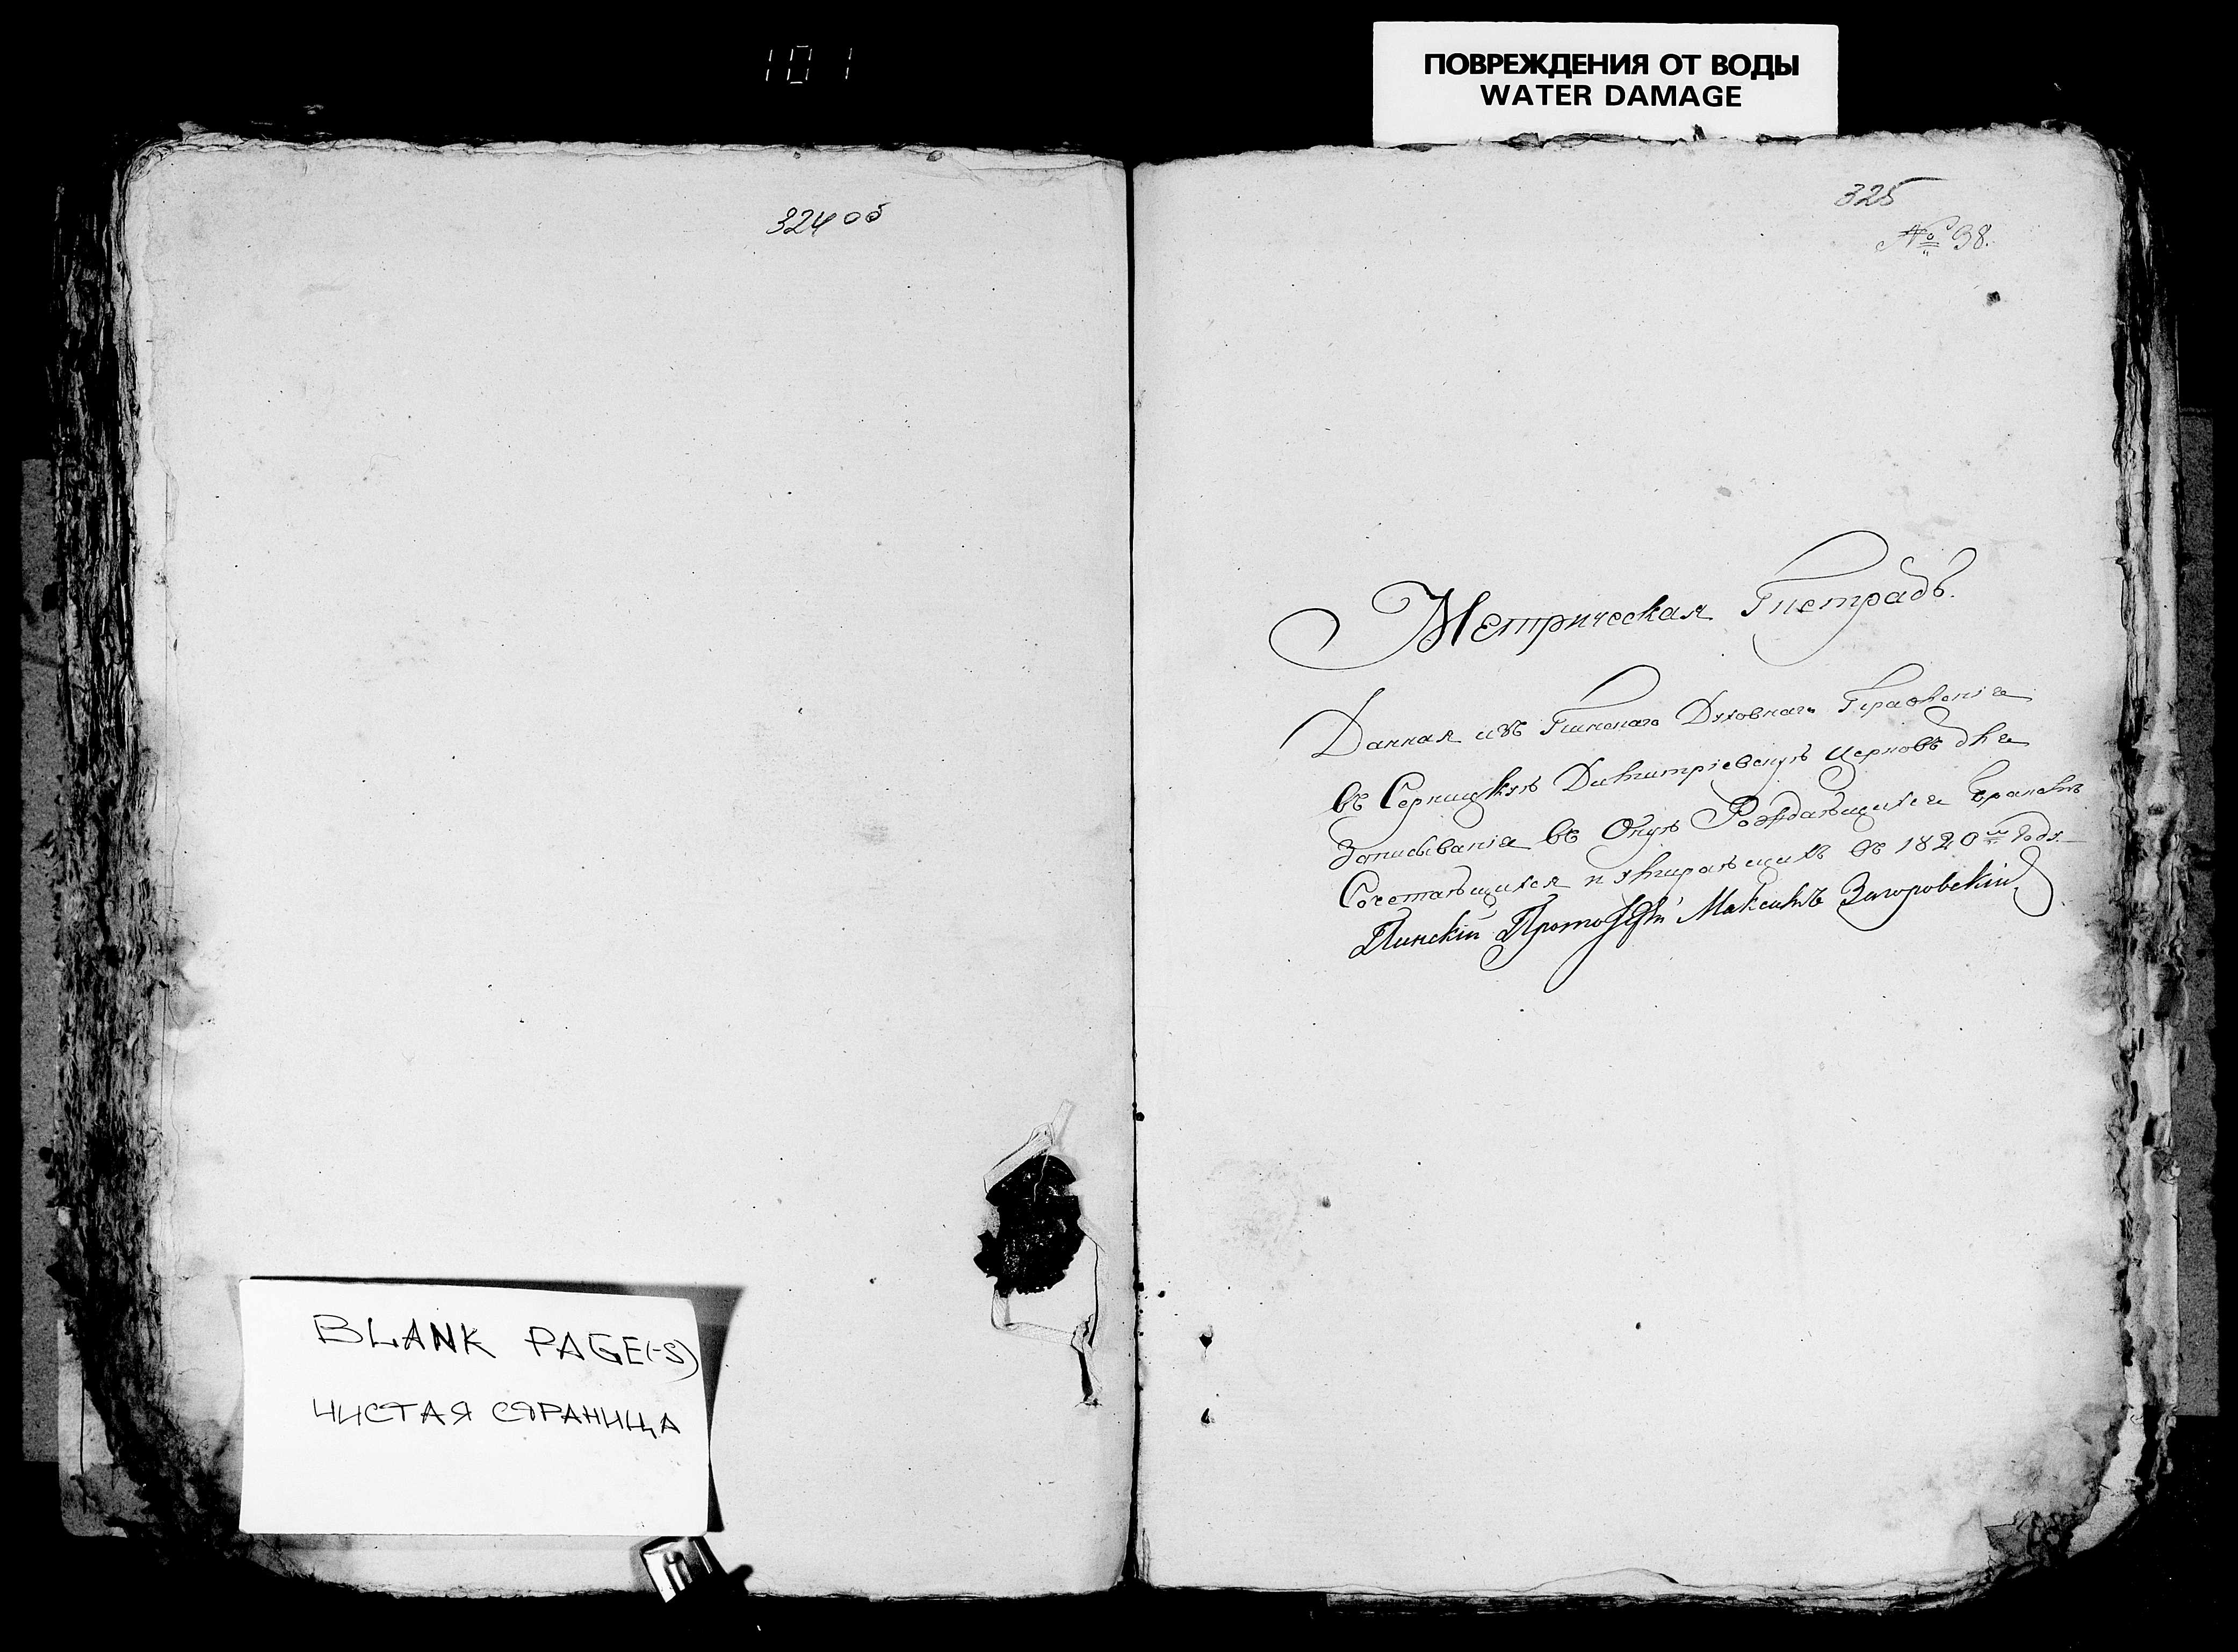 101
ПОВРЕЖДЕНИЯ ОТ ВОДЫ
WATER DAMAGE
324 об
BLANK PAGE(-S)
ЧИСТАЯ СТРАНИЦА
325
№ 38.
Метрическая Тетрадь.
Данная изъ Пинскаго Духовнаго Правленія
въ Серницкую Димитріевскую церковь для
Записыванія въ Оную Рождающихся Бракомъ
Сочетающихся и умирающихъ въ 1820м Году.
Пинскій Максимъ Загоровскій